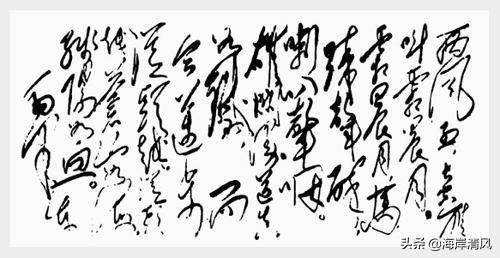 西风烈 长空雁
叫霜晨月。
霜晨月 马
蹄声碎
喇叭声咽。
雄关漫道真
如铁 而
今迈步
从头越 从头
越 苍山如海
残阳如血。
头条 @海岸清风